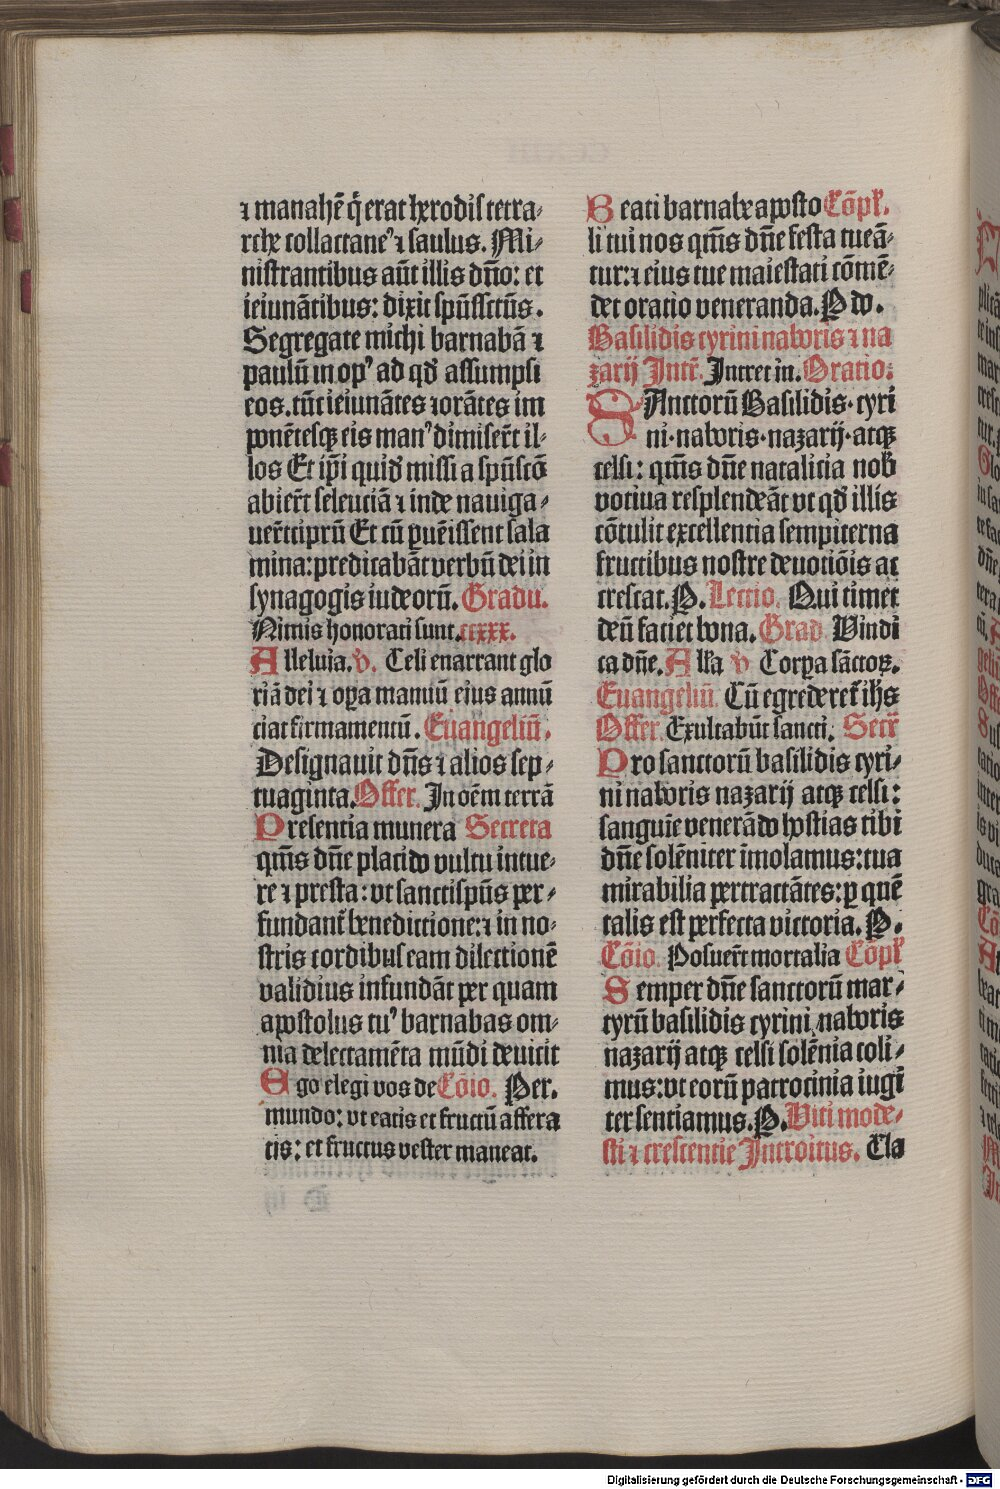 ⁊ manahē q̄ erat herodis tetra⸗
rche collactane⁹ ⁊ saulus. Mi⸗
nistrantibus aūt illis dño: et
ieiunātibus: dixit spūssctūs.
Segregate michi barnabā ⁊
paulū in op⁹ ad qd̄ assumpsi
eos. tūc ieiunātes ⁊ orātes im
ponētesqꝫ eis man⁹ dimiser̄t il⸗
los Et ip̄i quid̄ missi a spūscō
abier̄t seleuciā ⁊ inde nauiga⸗
uer̄t ciprū Et cū ꝑuēissent sala
mina: predicabāt verbū dei in
synagogis iudeorū. Gradu.
Nimis honorati sunt. ccxxx.
Alleluia. v̄. Celi enarrant glo
riā dei ⁊ oꝑa manuū eius annū
ciat firmamentū. Euangeliū.
Designauit dn̄s ⁊ alios sep⸗
tuaginta. Offer. In oēm terrā
Presentia munera Secreta
qm̄s dn̄e placido vultu intue⸗
re ⁊ presta: vt sanctispūs per⸗
fundant̄ benedictione: ⁊ in no⸗
stris cordibus eam dilectionē
validius infundāt per quam
apostolus tu⁹ barnabas om⸗
nia delectamēta mūdi deuicit
Ego elegi vos de Cōio. Per.
mundo: vt eatis et fructū affera
tis: et fructus vester maneat.
Beati barnabe aposto Cōpł.
li tui nos qm̄s dn̄e festa tueā⸗
tur: ⁊ eius tue maiestati cōmē⸗
det oratio veneranda. P do.
Basilidis cyrini naboris ⁊ na
zarij Intr̄. Intret in. Oratio.
SAnctorū Basilidis. cyri
ni. naboris. nazarij. atqꝫ
celsi: qm̄s dn̄e natalicia nob̄
votiua resplendeāt vt qd̄ illis
cōtulit excellentia sempiterna
fructibus nostre deuotiōis ac
crescat. P. Lectio. Qui timet
deū faciet bona. Grad Vindi
ca dn̄e. Alła v̄ Corꝑa sāctoꝝ.
Euangeliū. Cū egrederet̄ ihs̄
Offer. Exultabūt sancti. Secr̄
Pro sanctorū basilidis cyri⸗
ni naboris nazarij atqꝫ celsi:
sanguīe venerādo hostias tibi
dn̄e solēniter īmolamus: tua
mirabilia pertractātes: ꝑ quē
talis est perfecta victoria. P.
Cōio. Posuer̄t mortalia Cōpł
Semper dn̄e sanctorū mar⸗
tyrū basilidis cyrini naboris
nazarij atqꝫ celsi solēnia coli⸗
mus: vt eorū patrocinia iugi
ter sentiamus. P. Viti mode⸗
sti ⁊ crescentie Introitus. Cla
Digitalisierung gefördert durch die Deutsche Forschungsgemeinschaft - DFG